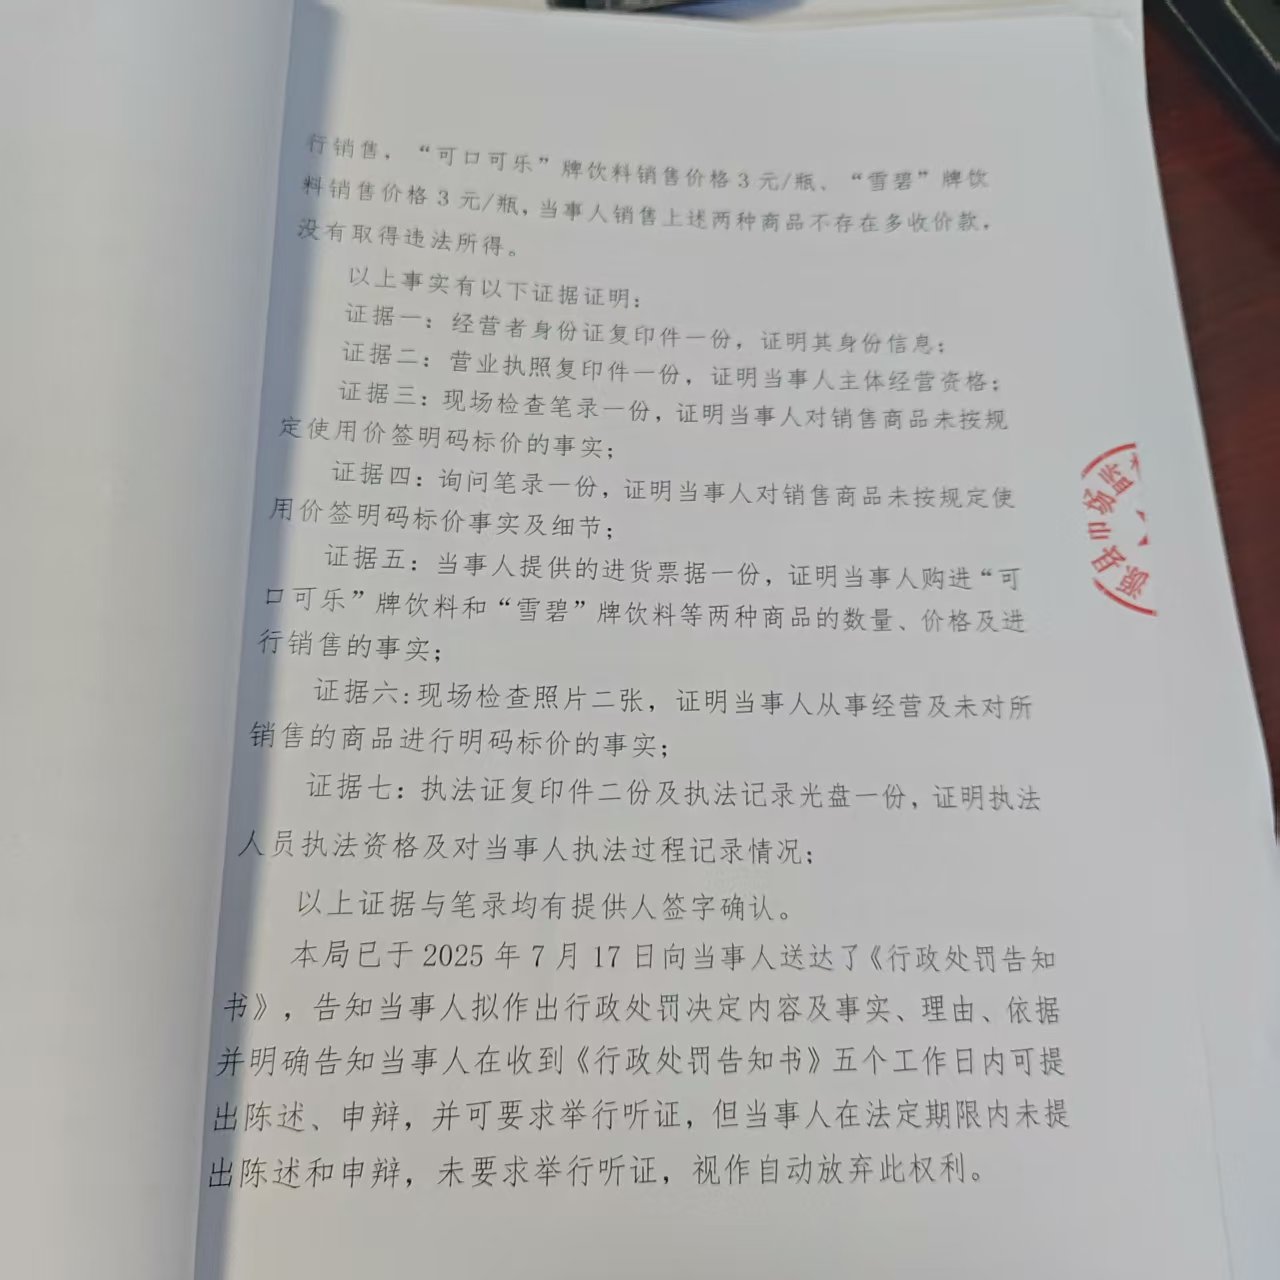 行销售，“可口可乐”牌饮料销售价格 3 元/瓶、“雪碧”牌饮
料销售价格 3 元/瓶，当事人销售上述两种商品不存在多收价款，
没有取得违法所得。
以上事实有以下证据证明：
证据一：经营者身份证复印件一份，证明其身份信息；
证据二：营业执照复印件一份，证明当事人主体经营资格；
证据三：现场检查笔录一份，证明当事人对销售商品未按规
定使用价签明码标价的事实；
证据四：询问笔录一份，证明当事人对销售商品未按规定使
用价签明码标价事实及细节；
证据五：当事人提供的进货票据一份，证明当事人购进“可
口可乐”牌饮料和“雪碧”牌饮料等两种商品的数量、价格及进
行销售的事实；
证据六：现场检查照片二张，证明当事人从事经营及未对所
销售的商品进行明码标价的事实；
证据七：执法证复印件二份及执法记录光盘一份，证明执法
人员执法资格及对当事人执法过程记录情况；
以上证据与笔录均有提供人签字确认。
本局已于 2025 年 7 月 17 日向当事人送达了《行政处罚告知
书》，告知当事人拟作出行政处罚决定内容及事实、理由、依据
并明确告知当事人在收到《行政处罚告知书》五个工作日内可提
出陈述、申辩，并可要求举行听证，但当事人在法定期限内未提
出陈述和申辩，未要求举行听证，视作自动放弃此权利。
市场监